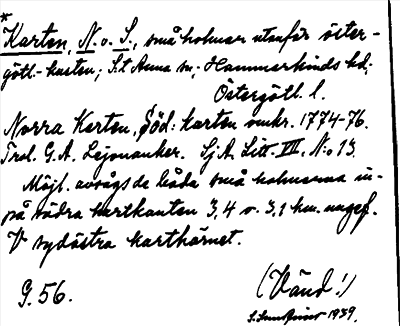 *
Karten, N. o. S., små holmar utanför öster-
götl.-kusten; S:t Anna sn; Hammarkinds hd;
Östergötl. l.
Norra Karten, Söd: karten omkr. 1774-76.
Trol. G.A. Lejonanker. Sj.A. Litt VIII, N:o 13
Möjl. avvägs de båda små holmarna in-
på södra kartkanten 3,4 o. 3,1 km. ungef.
V sydöstra karthörnet.
G. 56.
(Vänd!)
1939.